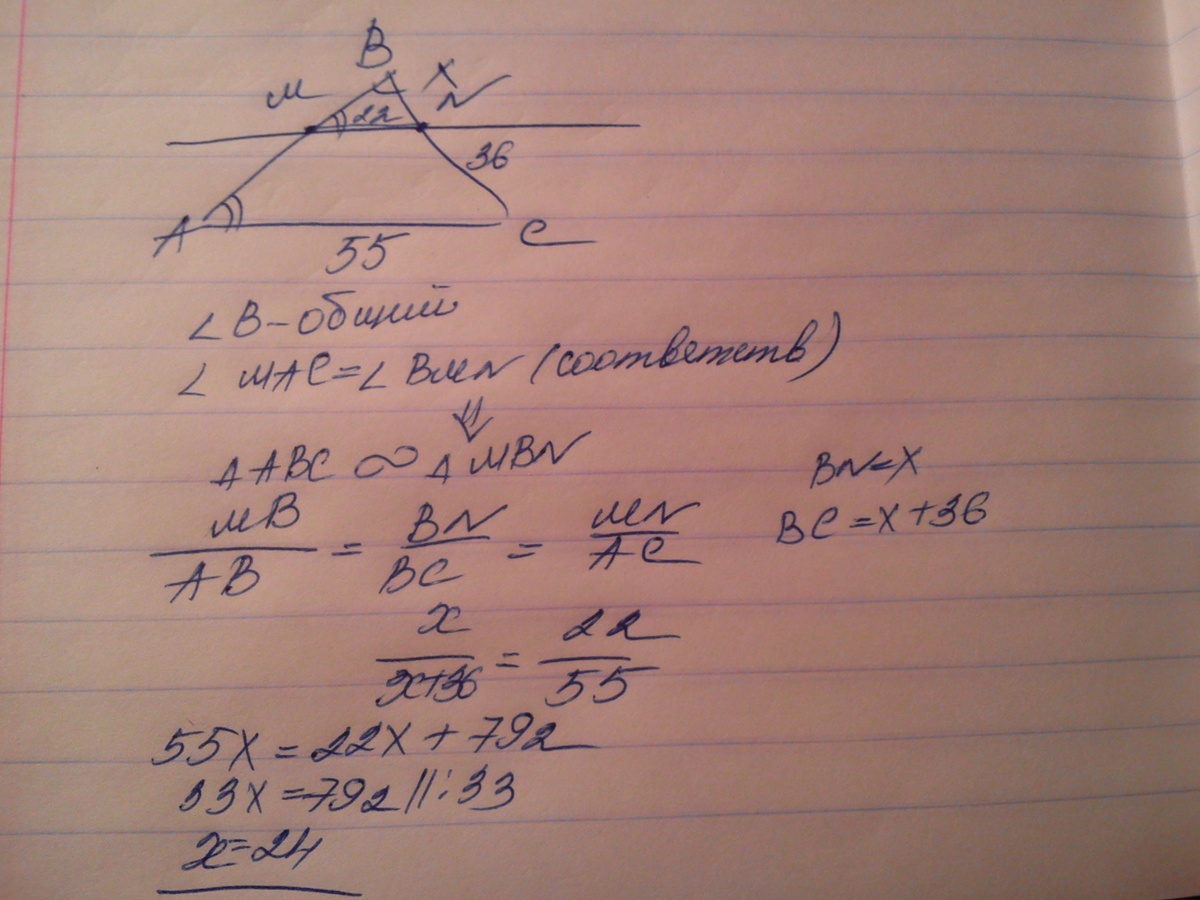 B
M 22 x N
36
A 55 C
∠ B - общий
∠ MAC = ∠ BMN (соответств)
⇓
Δ ABC ∾ Δ MBN
BN = x
MB/AB = BN/BC = MN/AC
BC = x + 36
x/x+36 = 22/55
55x = 22x + 792
33x = 792 ||:33
x = 24